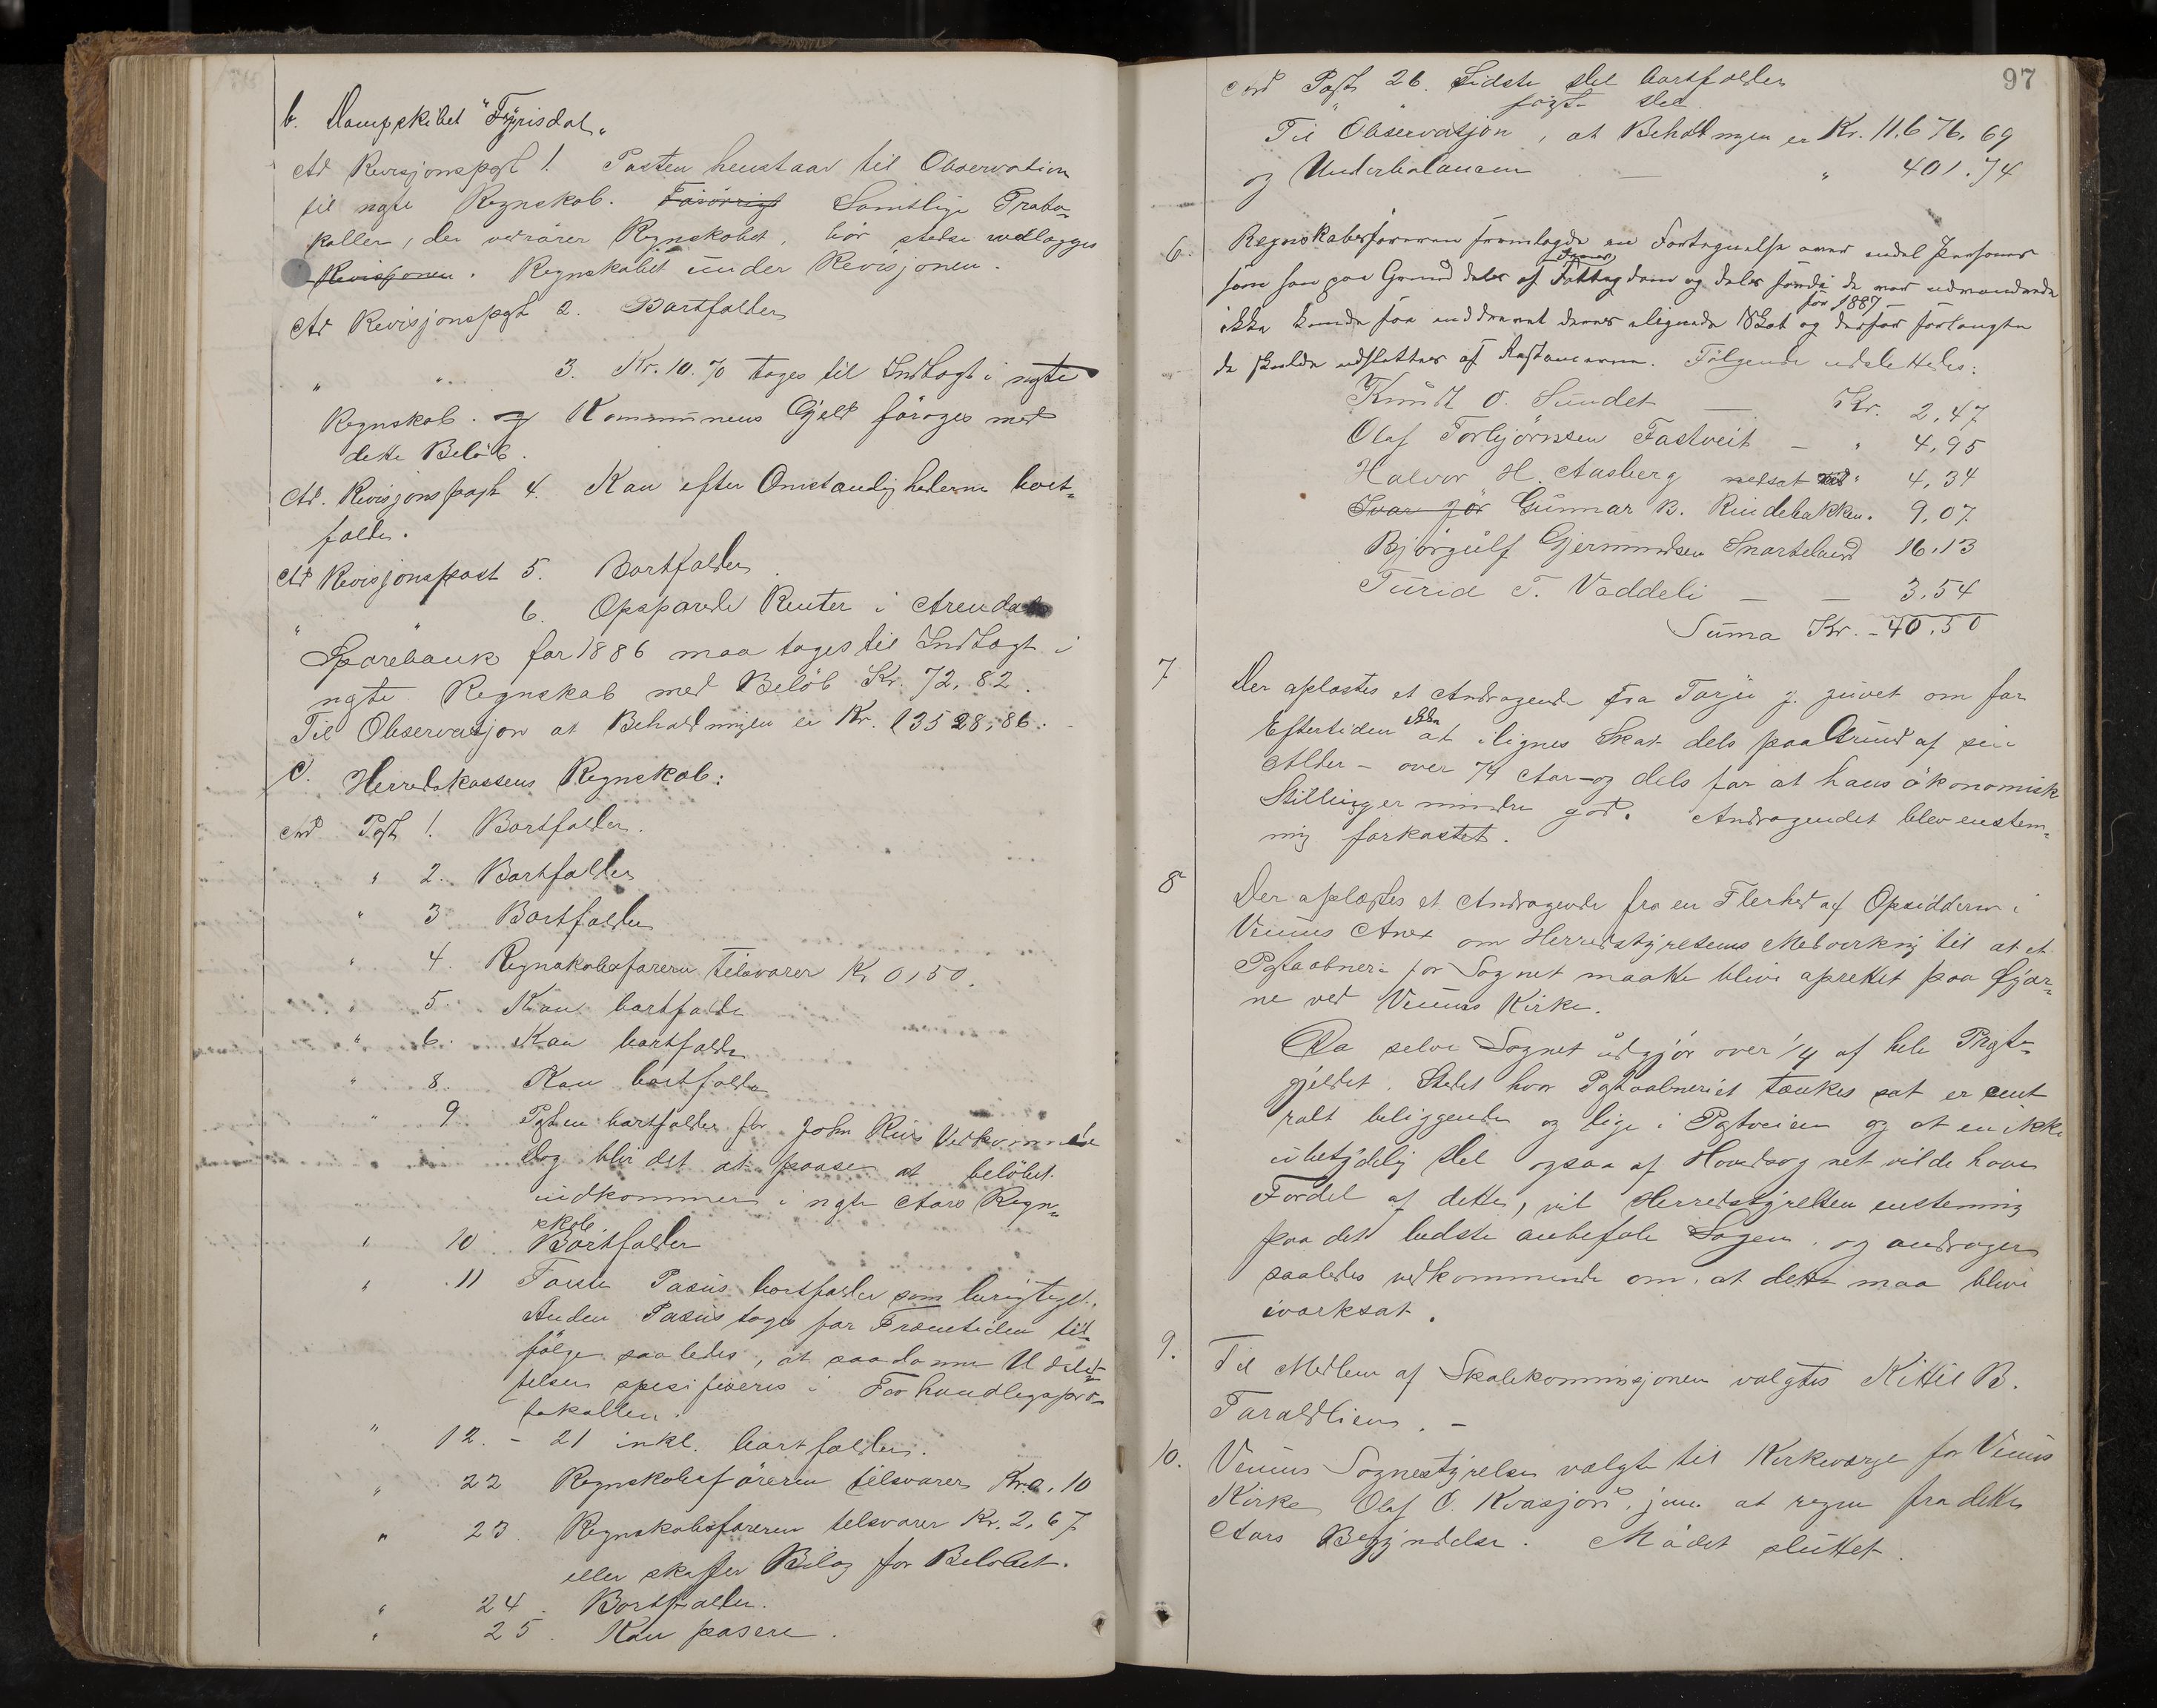 b. Dampskibet "Fyrisdal"
Ad Revisjonspost 1. Posten henstaar til Observation
til nyte Regnskab. Forövrigt Samtlige Proto-
koller, der vedrörer Regnskabet, bör stedse vedlægges
Revisjonen. Regnskabet under Revisjonen.
Ad Revisjonspost 2. Bortfalder
" " 3. Kr. 10.70 tages til Indtægt i nyte
Regnskab. og Kommunens Gjeld föröges med
dette Belöb.
Ad. Revisjonspost 4. Kan efter Omstændighederne bort-
falde.
Ad Revisjonspost 5. Bortfalder
" " 6. Opsparede Renter i Arendals
Sparebank for 1886 maa tages til Indtægt i
nyte Regnskab med Belöb Kr. 72,82.
Til Observasjon at Beholdningen er Kr. 13528,86.
C. Herredskassens Regnskab:
And Post 1. Bortfalder.
" 2. Bortfalder
" 3. Bortfalder
" 4. Regnskabsföreren tilsvarer Kr 0,50.
5. Kan bortfalde
" 6. Kan bortfalde
" 8. Kan bortfalde
" 9 Posten bortfalder for John Riis Vedkommende
dog blir det at paase at belöbet
indkommer i nyte Aars Regn-
skab.
" 10 Bortfalder
" 11 Förste Pasus bortfalder som berigtiget.
Anden Pasus tages for Fremtiden til-
fölge saaledes, at saadanne Udslet-
telser spesifiseres i Forhandlingspro-
tokollen.
" 12. - 21 inkl. bortfalder.
" 22 Regnskabsföreren tilsvarer Kr. 0,10
" 23. Regnskabsföreren tilsvarer Kr. 2,67
eller skaffer Bilag for Belöbet.
" 24. Bortfalder.
" 25. Kan pasere.
97
And Post 26. Sidste Del bortfalder
" " förste Del
Til Observasjon, at Beholdningen er Kr. 11.676,69
og Underbalancen — " 401.74
6. Regnskabsföreren fremlagde en Fortegnelse over endel Personer
som han paa Grund dels af Fattigdom og dels fordi de var udvandrede
för 1887
ikke kunde faa inddrevet deres ilignede Skat og derfor forlangte
de skulde udslettes af Restancerne. Fölgende udslettedes:
Knud O. Sundet — Kr. 2,47
Olaf Torbjörnsen Fastveit — " 4,95
Halvor H. Aasberg nedsat med " 4,34
Ivar Gunnar B. Rindebakken. 9,07
Björgulf Gjermundsen Snarteland 16.13
Turid T. Vaddeli — — 3.54
Suma Kr. - 40.50
7 Der oplæstes et Andragende fra Tarjei J. Juvet om for
Eftertiden ikke at ilignes Skat dels paa Grund af sin
Alder - over 74 Aar - og dels for at hans ökonomisk
Stilling er mindre god. Andragendet blev enstem-
mig forkastet.
8 Der oplæstes et Andragende fra en Flerhed af Opsidderne i
Veums Anex om Herredstyrelsens Medvirkning til at et
Postaabneri for Sognet maatte blive oprettet paa Gjær-
ne ved Veums Kirke.
Da selve Sognet udgjör over 1/4 af hele Præste-
gjeldet. Stedet hvor Postaabneriet tænkes sat er cent
ralt beliggende og lige i Postveien og at en ikke
ubetydelig Del ogsaa af Hovedsognet vilde have
Fordel af dette, vil Herredstyrelsen enstemmig
paa det bedste anbefale Sagen og andrager
saaledes vedkommende om at dette maa blive
iværksat.
9. Til Medlem af Skolekommisjonen valgtes Kittil B.
Taraldlien. -
10. Veums Sognestyrelse valgte til Kirkeværge for Veums
Kirke Olaf O. Kvasjord, jun. at regne fra dette
Aars Begyndelse. Mödet sluttet.